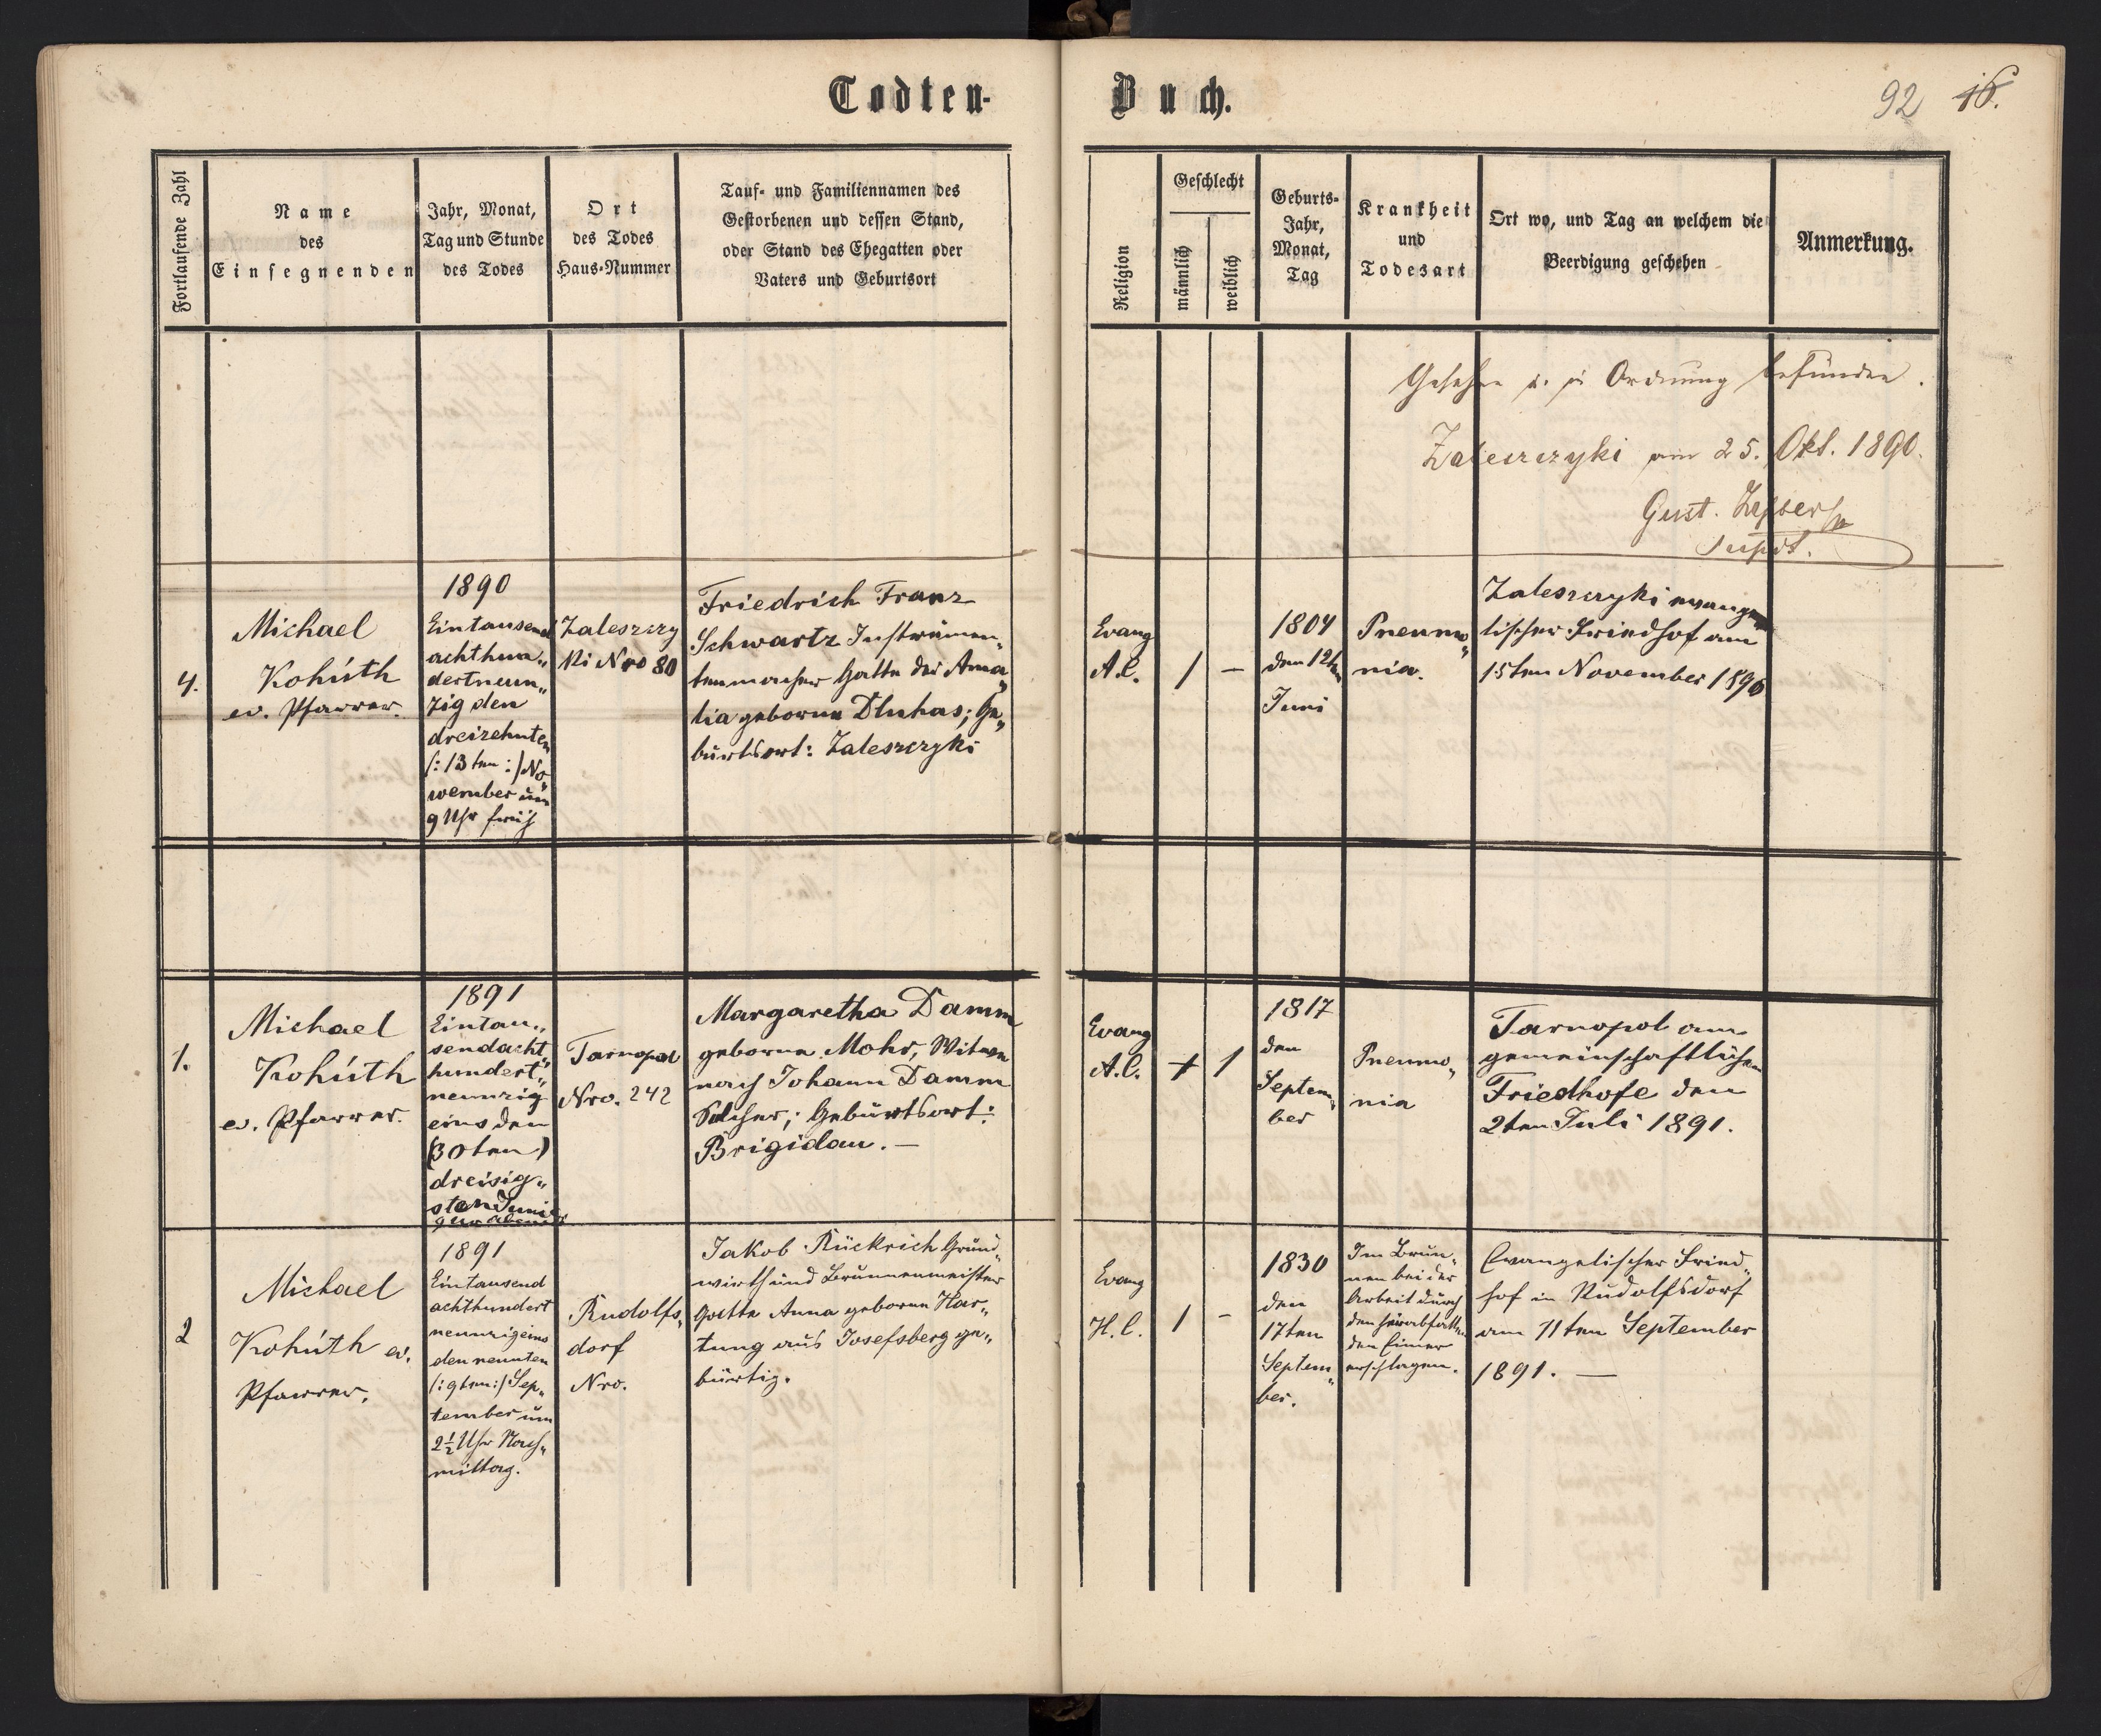 Todten-
Buch.
92 16.
Fortlaufende Zahl
Name
des
Einsegnenden
Jahr, Monat,
Tag und Stunde
des Todes
Ort
des Todes
Haus-Nummer
Tauf- und Familiennamen des
Gestorbenen und dessen Stand,
oder Stand des Ehegatten oder
Vaters und Geburtsort
Religion
Geschlecht
männlich
weiblich
Geburts-
Jahr,
Monat,
Tag
Krankheit
und
Todesart
Ort wo, und Tag an welchem die
Beerdigung geschehen
Anmerkung.
Gesehen u. in Ordnung befunden.
Zaleszczyki am 25. Okt. 1890.
Gust.
Supdt.
4.
Michael
Kohúth
ev. Pfarrer.
1890
Eintausend
achthun„
dertneun„
zig den
dreizehnten
/:13ten:/ No„
vember um
9 Uhr früh
Zaleszczy
ki Nro 80
Friedrich Franz
Schwartz Instrumen„
tenmacher Gatte der Ama„
lia geborne Dluhas; Ge„
burtsort: Zaleszczyki
Evang
A.C.
1
–
1804
den 12ten
Juni
Pneumo„
nia.
Zaleszczyki evange
lischer Friedhof am
15ten November 1890
1.
Michael
Kohúth
ev. Pfarrer.
1891
Eintau„
sendacht„
hundert„
neunzig
eins den
(30ten)
dreisig„
sten Juni
9 Uhr abends
Tarnopol
Nro. 242
Margaretha Damm
geborne Mohr, Witwe
nach Johann Damm
; Geburtsort:
Brigidau. –
Evang
A.C.
1
1817
den
Septem„
ber
Pneumo„
nia
Tarnopol am
gemeinschaftlichen
Friedhofe den
2ten Juli 1891.
2
Michael
Kohúth ev.
Pfarrer.
1891
Eintausend
achthundert
neunzigeins
den neunten
/:9ten:/ Sep„
tember um
2½ Uhr Nach„
mittag.
Rudolfs„
dorf
Nro.
Jakob Rückrich Grund„
wirth und Brunnenmeister
Gatte Anna geborne Har„
tung aus Josefsberg ge„
bürtig.
Evang
H.C.
1
–
1830
den
17ten
Septem„
ber.
Im Brun„
nen bei der
Arbeit durch
den herabfallen
den Eimer
erschlagen.
Evangelischer Fried„
hof in Rudolfsdorf
am 11ten September
1891. —